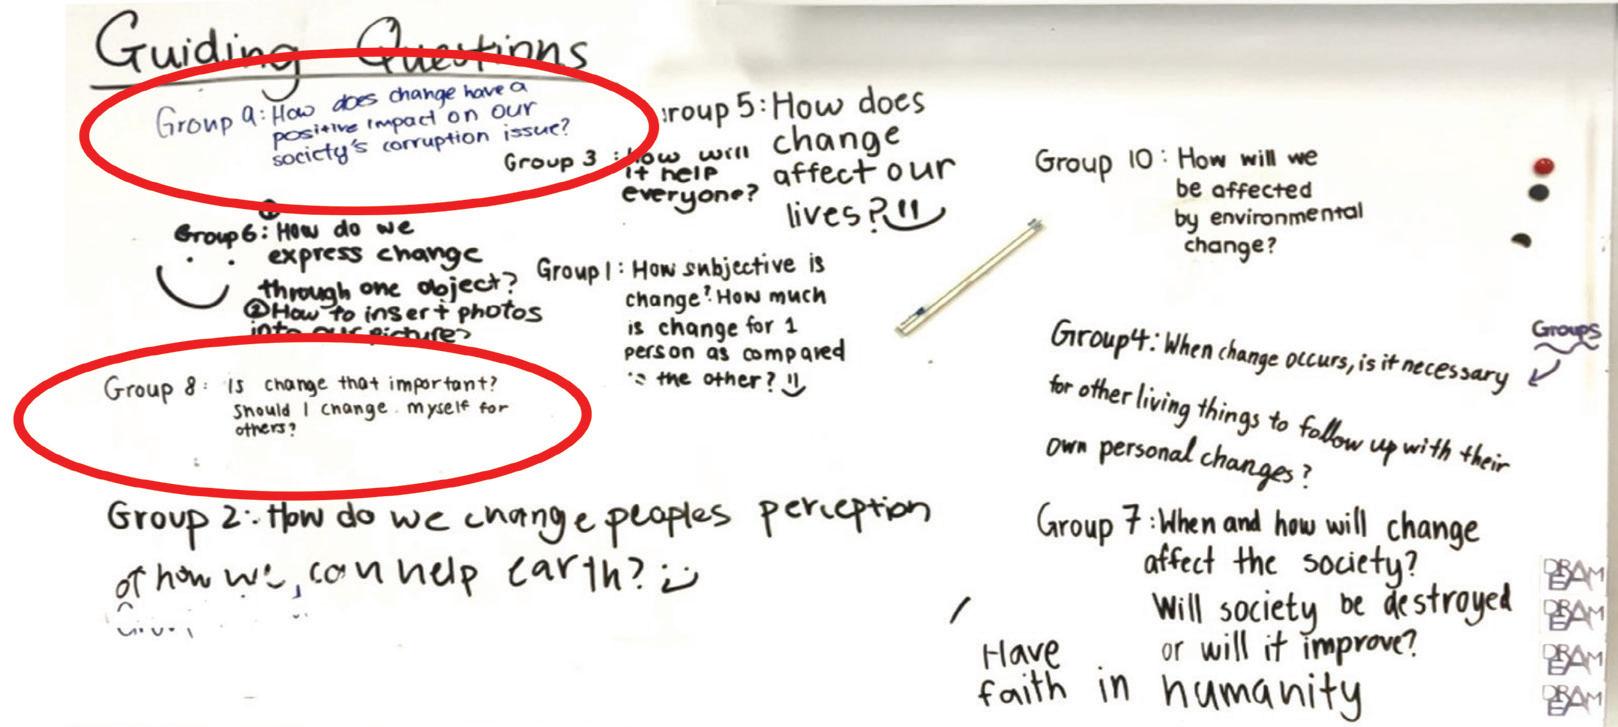 Guiding Questions
Group 9: How does change have a
positive impact on our
society's corruption issue?
Group 3 : How will
it help
everyone?
Group 5: How does
change
affect our
lives?
Group 6: ① How do we
express change
through one object?
② How to insert photos
into our picture?
Group 1: How subjective is
change? How much
is change for 1
person as compared
to the other?
Group 8: Is change that important?
Should I change myself for
others?
Group 2: How do we change peoples perception
of how we can help earth?
Group 10: How will we
be affected
by environmental
change?
Groups
Group 4: When change occurs, is it necessary
for other living things to follow up with their
own personal changes?
Group 7: When and how will change
affect the society?
Will society be destroyed
or will it improve?
Have
faith in humanity
DREAM
DREAM
DREAM
DREAM